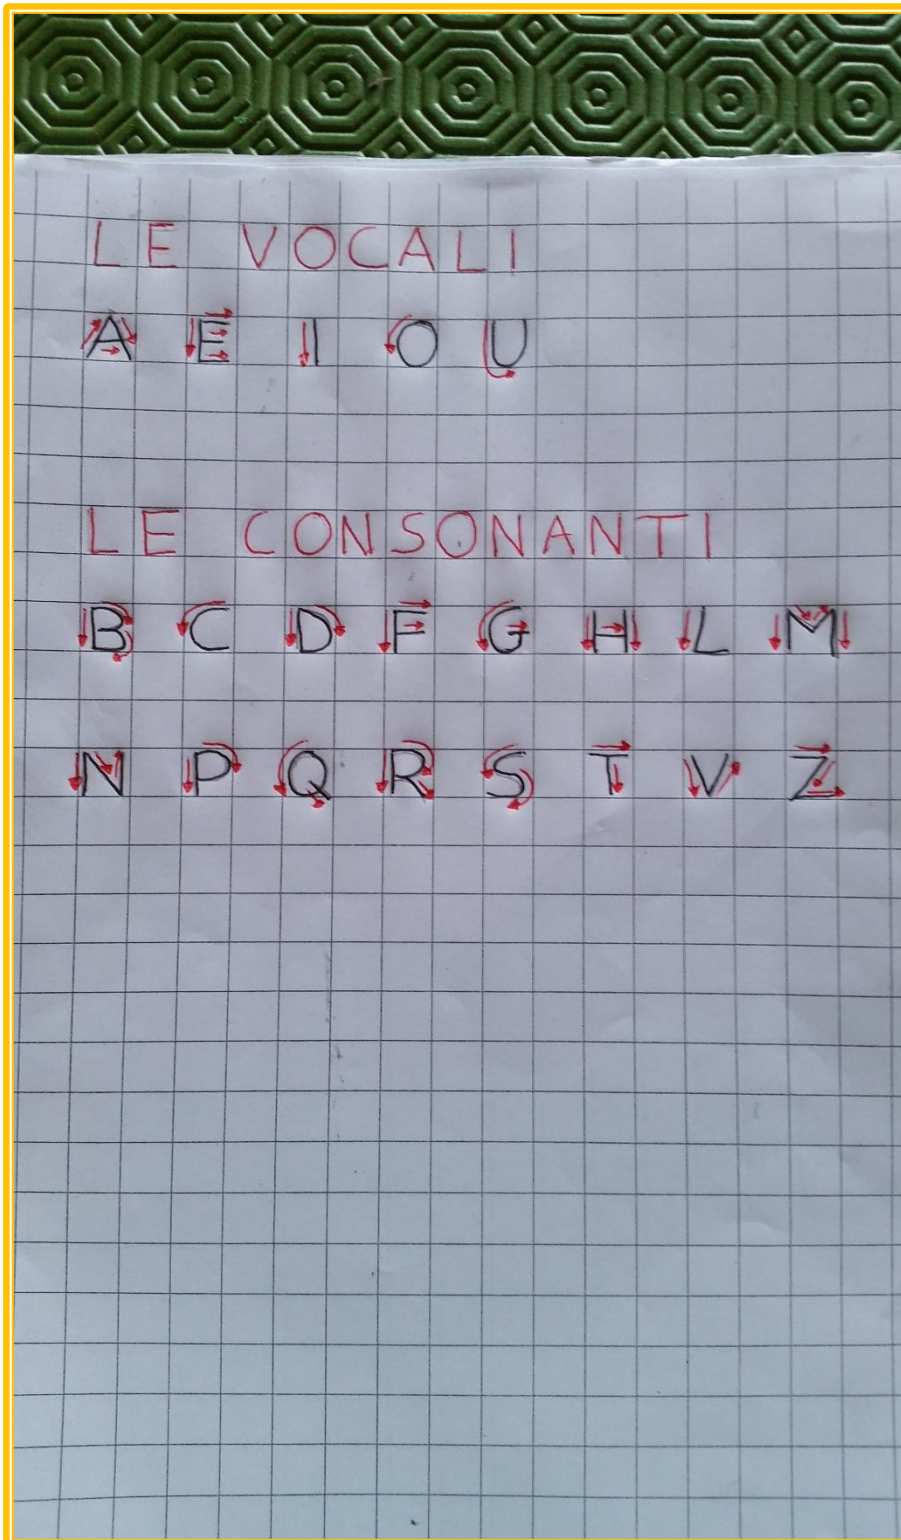 LE VOCALI
A E I O U
LE CONSONANTI
B C D F G H L M
N P Q R S T V Z